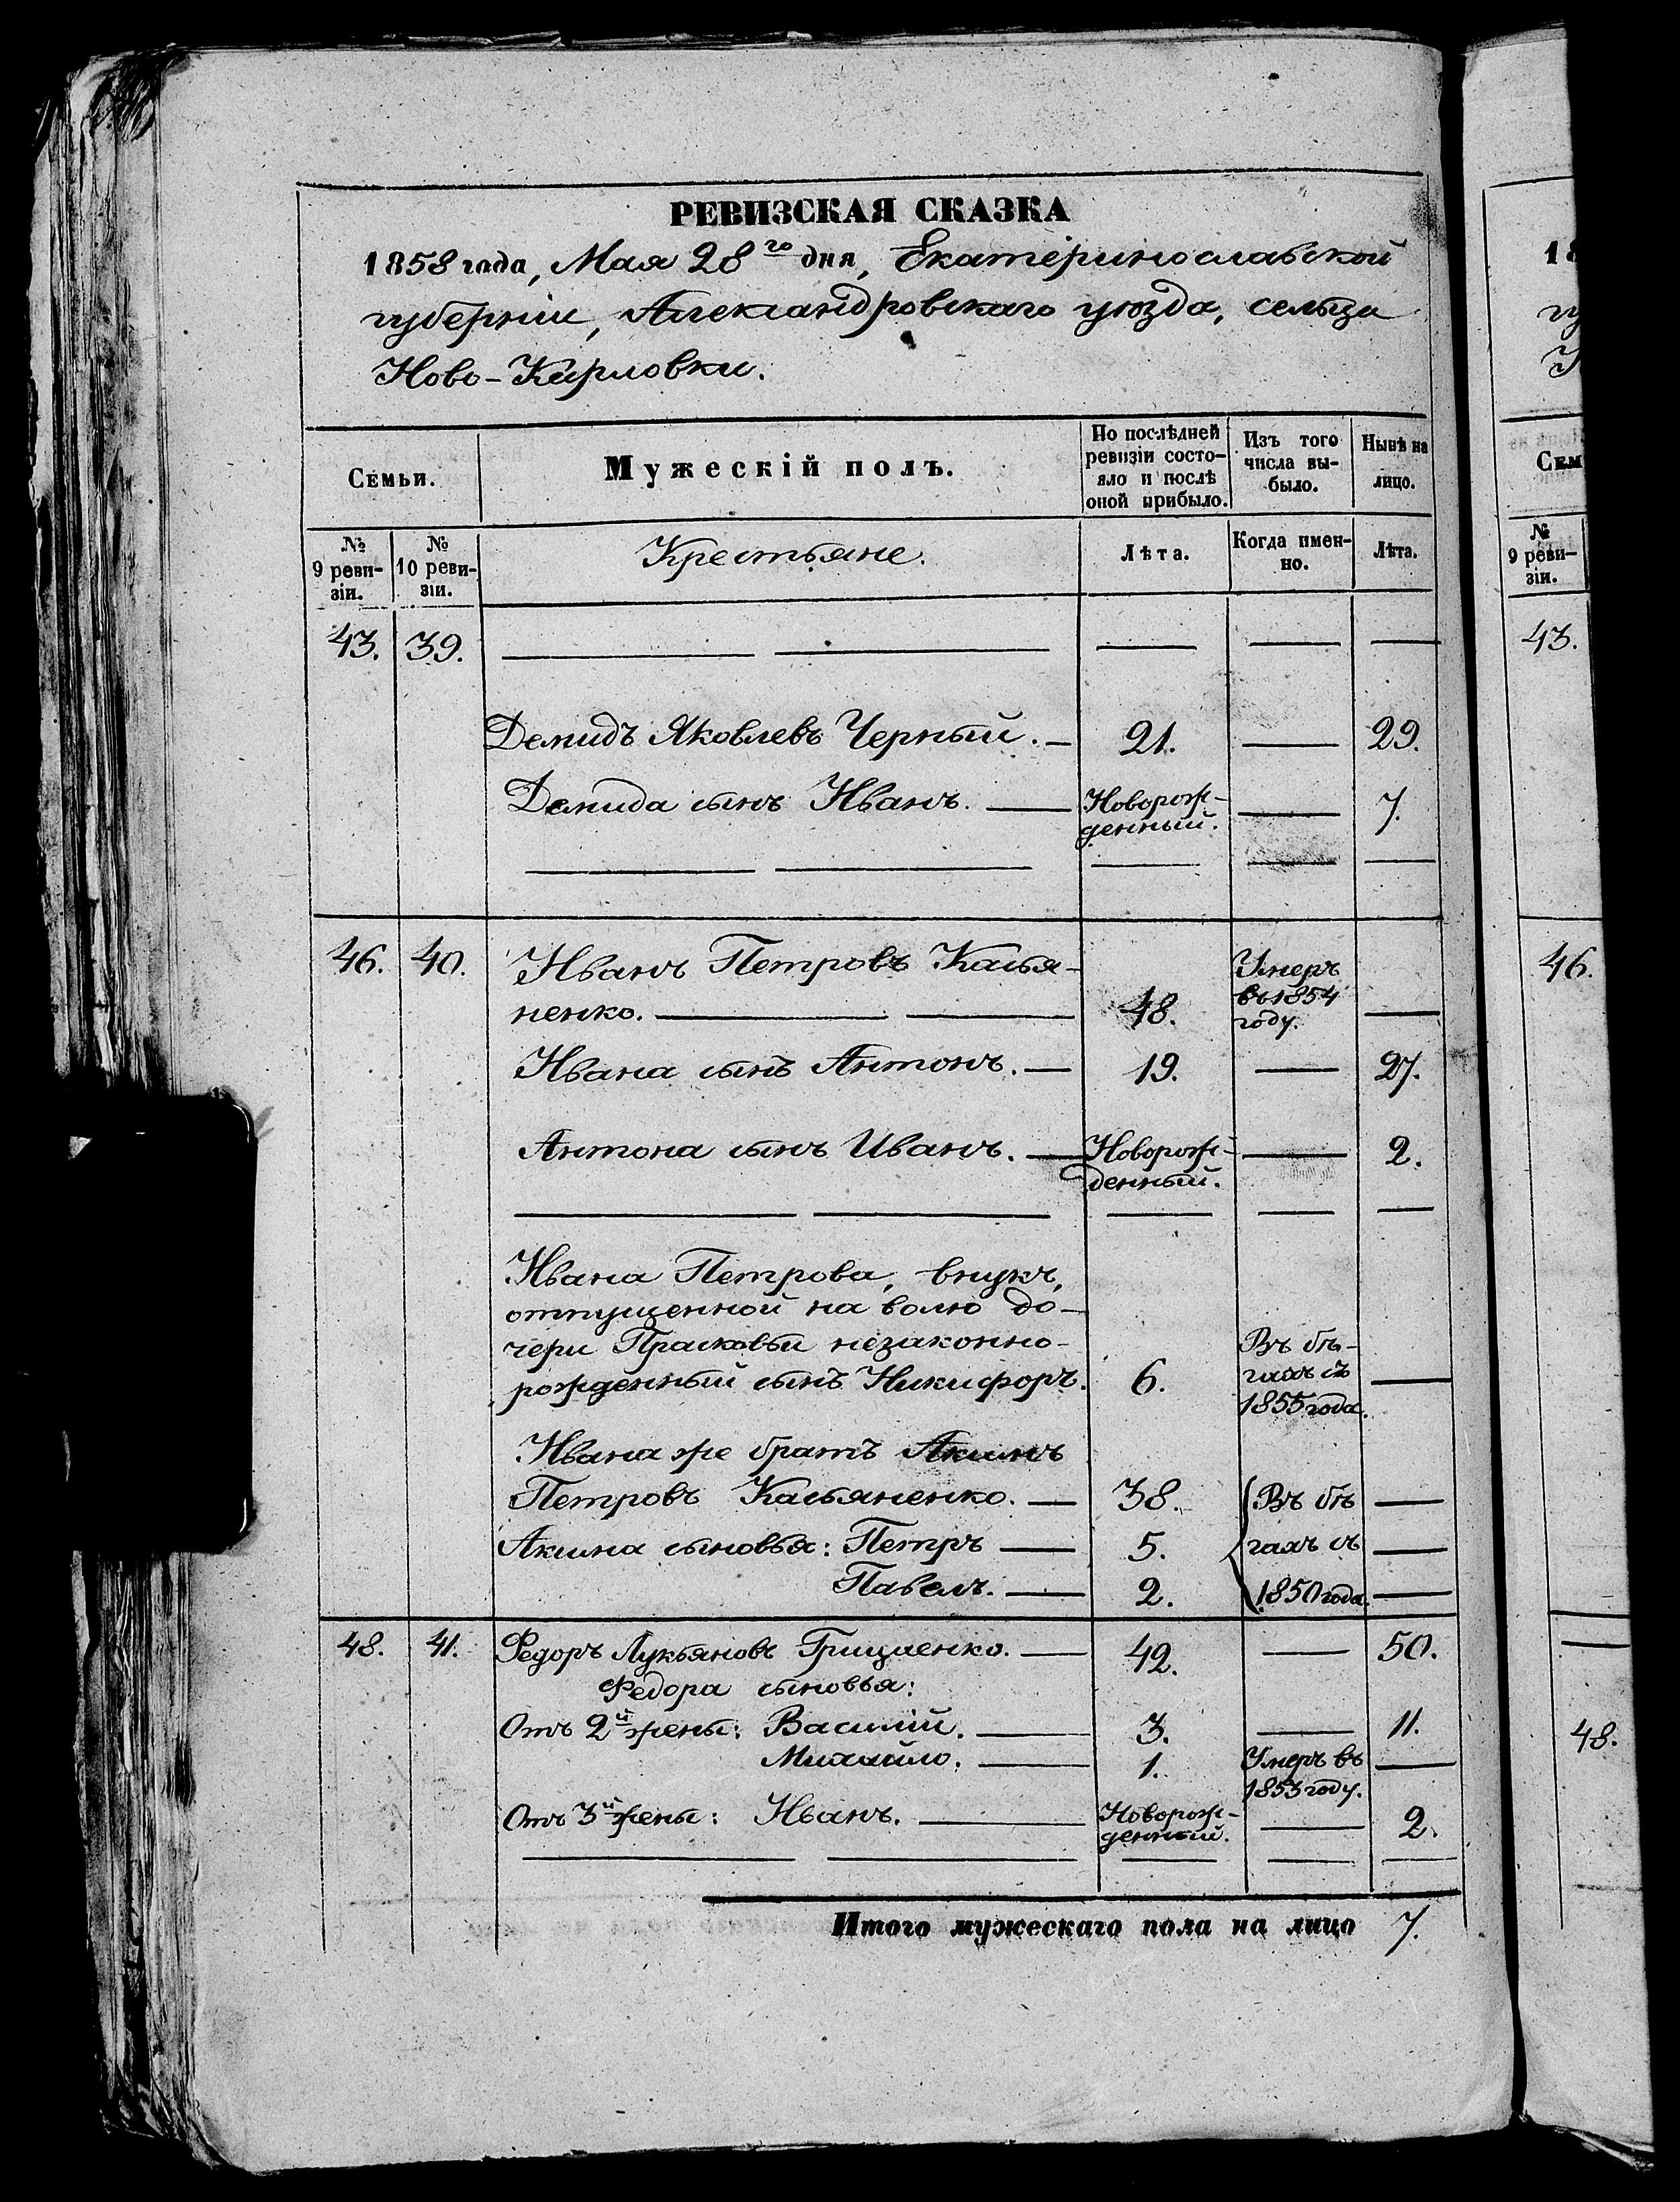 РЕВИЗСКАЯ СКАЗКА
1858 года, Мая 28го дня, Екатеринославской
губерніи, Александровскаго уѣзда, сельца
Ново-Карловки.
Семьи.
Мужескій полъ.
По послѣдней ревизіи состояло и послѣ оной прибыло.
Изъ того числа выбыло.
Нынѣ на лицо.
№ 9 ревизіи.
№ 10 ревизіи.
Крестьяне.
Лѣта.
Когда именно.
Лѣта.
43. 39.
Демидъ Яковлевъ Черный. — 21. — 29.
Демида сынъ Иванъ. — Новорожденный. — 7.
46. 40. Иванъ Петровъ Касья-
ненко. — 48. Умеръ въ 1854 году. —
Ивана сынъ Антонъ. — 19. — 27.
Антона сынъ Иванъ. — Новорожденный. — 2.
Ивана Петрова, внукъ,
отпущенной на волю до-
чери Прасковьи незаконно-
рожденный сынъ Никифоръ. 6. Въ бѣгахъ съ 1855 года. —
Ивана же братъ Акимъ
Петровъ Касьяненко. — 38. Въ бѣ —
Акима сыновья: Петръ — 5. гахъ съ —
Павелъ. — 2. 1850 года. —
48. 41. Федоръ Лукьяновъ Грищенко. — 42. — 50.
Федора сыновья:
Отъ 2й жены: Василій. — 3. — 11.
Михайло. — 1. Умеръ въ 1853 году. —
Отъ 3й жены: Иванъ. — Новорожденный. — 2.
Итого мужескаго пола на лицо 7.
18
гу
Сем
№
9 реви-
зіи.
43.
46.
48.